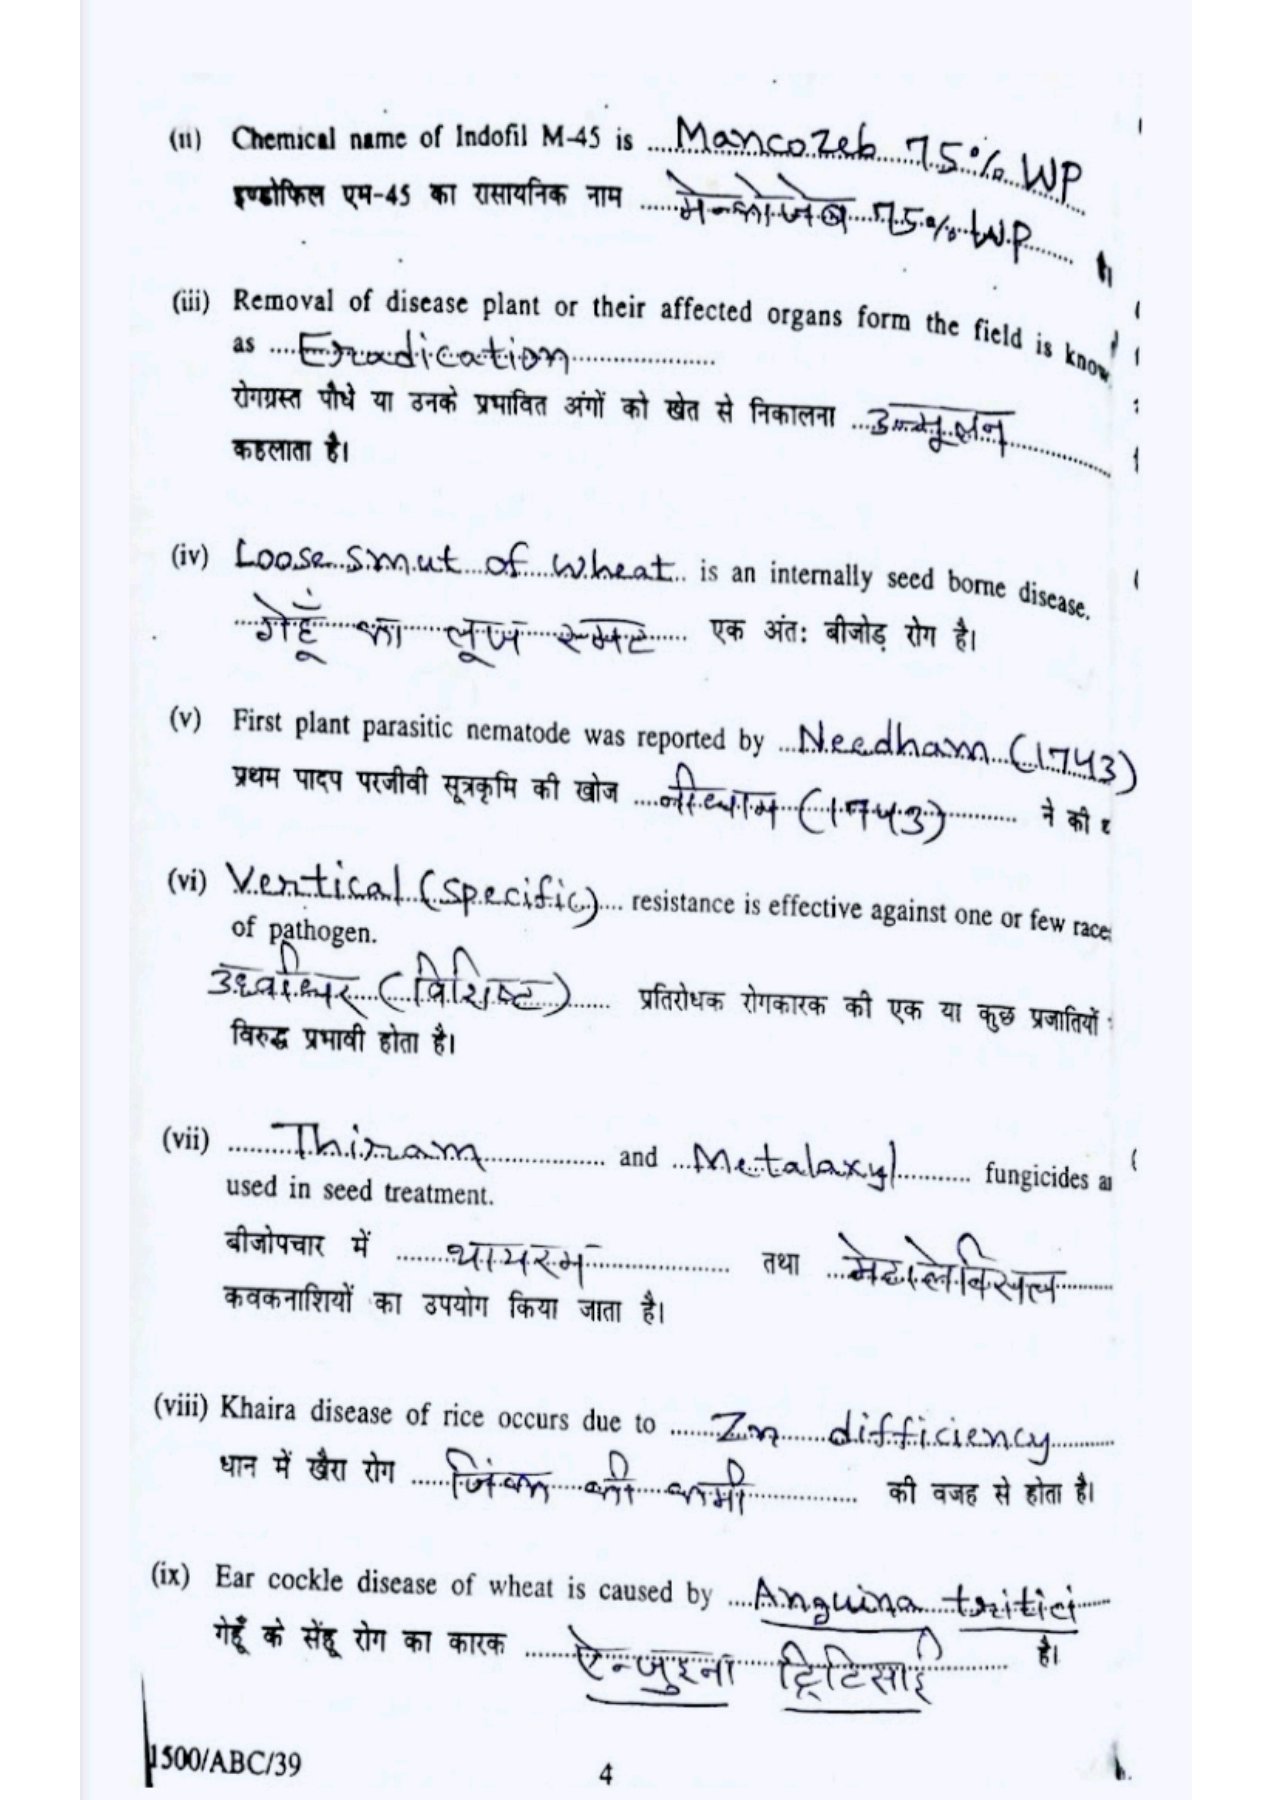 (ii) Chemical name of Indofil M-45 is ....Mancozeb 75% WP
इण्डोफिल एम-45 का रासायनिक नाम ....मेन्कोजेब 75% WP....
(iii) Removal of disease plant or their affected organs form the field is know
as ....Eradication....
रोगग्रस्त पौधे या उनके प्रभावित अंगों को खेत से निकालना ....उन्मूलन....
कहलाता है।
(iv) Loose smut of wheat.. is an internally seed borne disease.
....गेहूँ का लूज स्मट.... एक अंतः बीजोड़ रोग है।
(v) First plant parasitic nematode was reported by ....Needham (1743)
प्रथम पादप परजीवी सूत्रकृमि की खोज ....नीधाम (1743).... ने की
(vi) Vertical (specific).... resistance is effective against one or few race
of pathogen.
उर्ध्वाधर (विशिष्ट).... प्रतिरोधक रोगकारक की एक या कुछ प्रजातियों
विरुद्ध प्रभावी होता है।
(vii) ....Thiram.... and ....Metalaxyl.... fungicides a
used in seed treatment.
बीजोपचार में ....थायरम.... तथा ....मेटालेक्सिल....
कवकनाशियों का उपयोग किया जाता है।
(viii) Khaira disease of rice occurs due to ....Zn difficiency....
धान में खैरा रोग ....जिंक की कमी.... की वजह से होता है।
(ix) Ear cockle disease of wheat is caused by ....Anguina tritici....
गेहूँ के सेंहू रोग का कारक ....ऐन्जुइना ट्रिटिसाई.... है।
1500/ABC/39
4